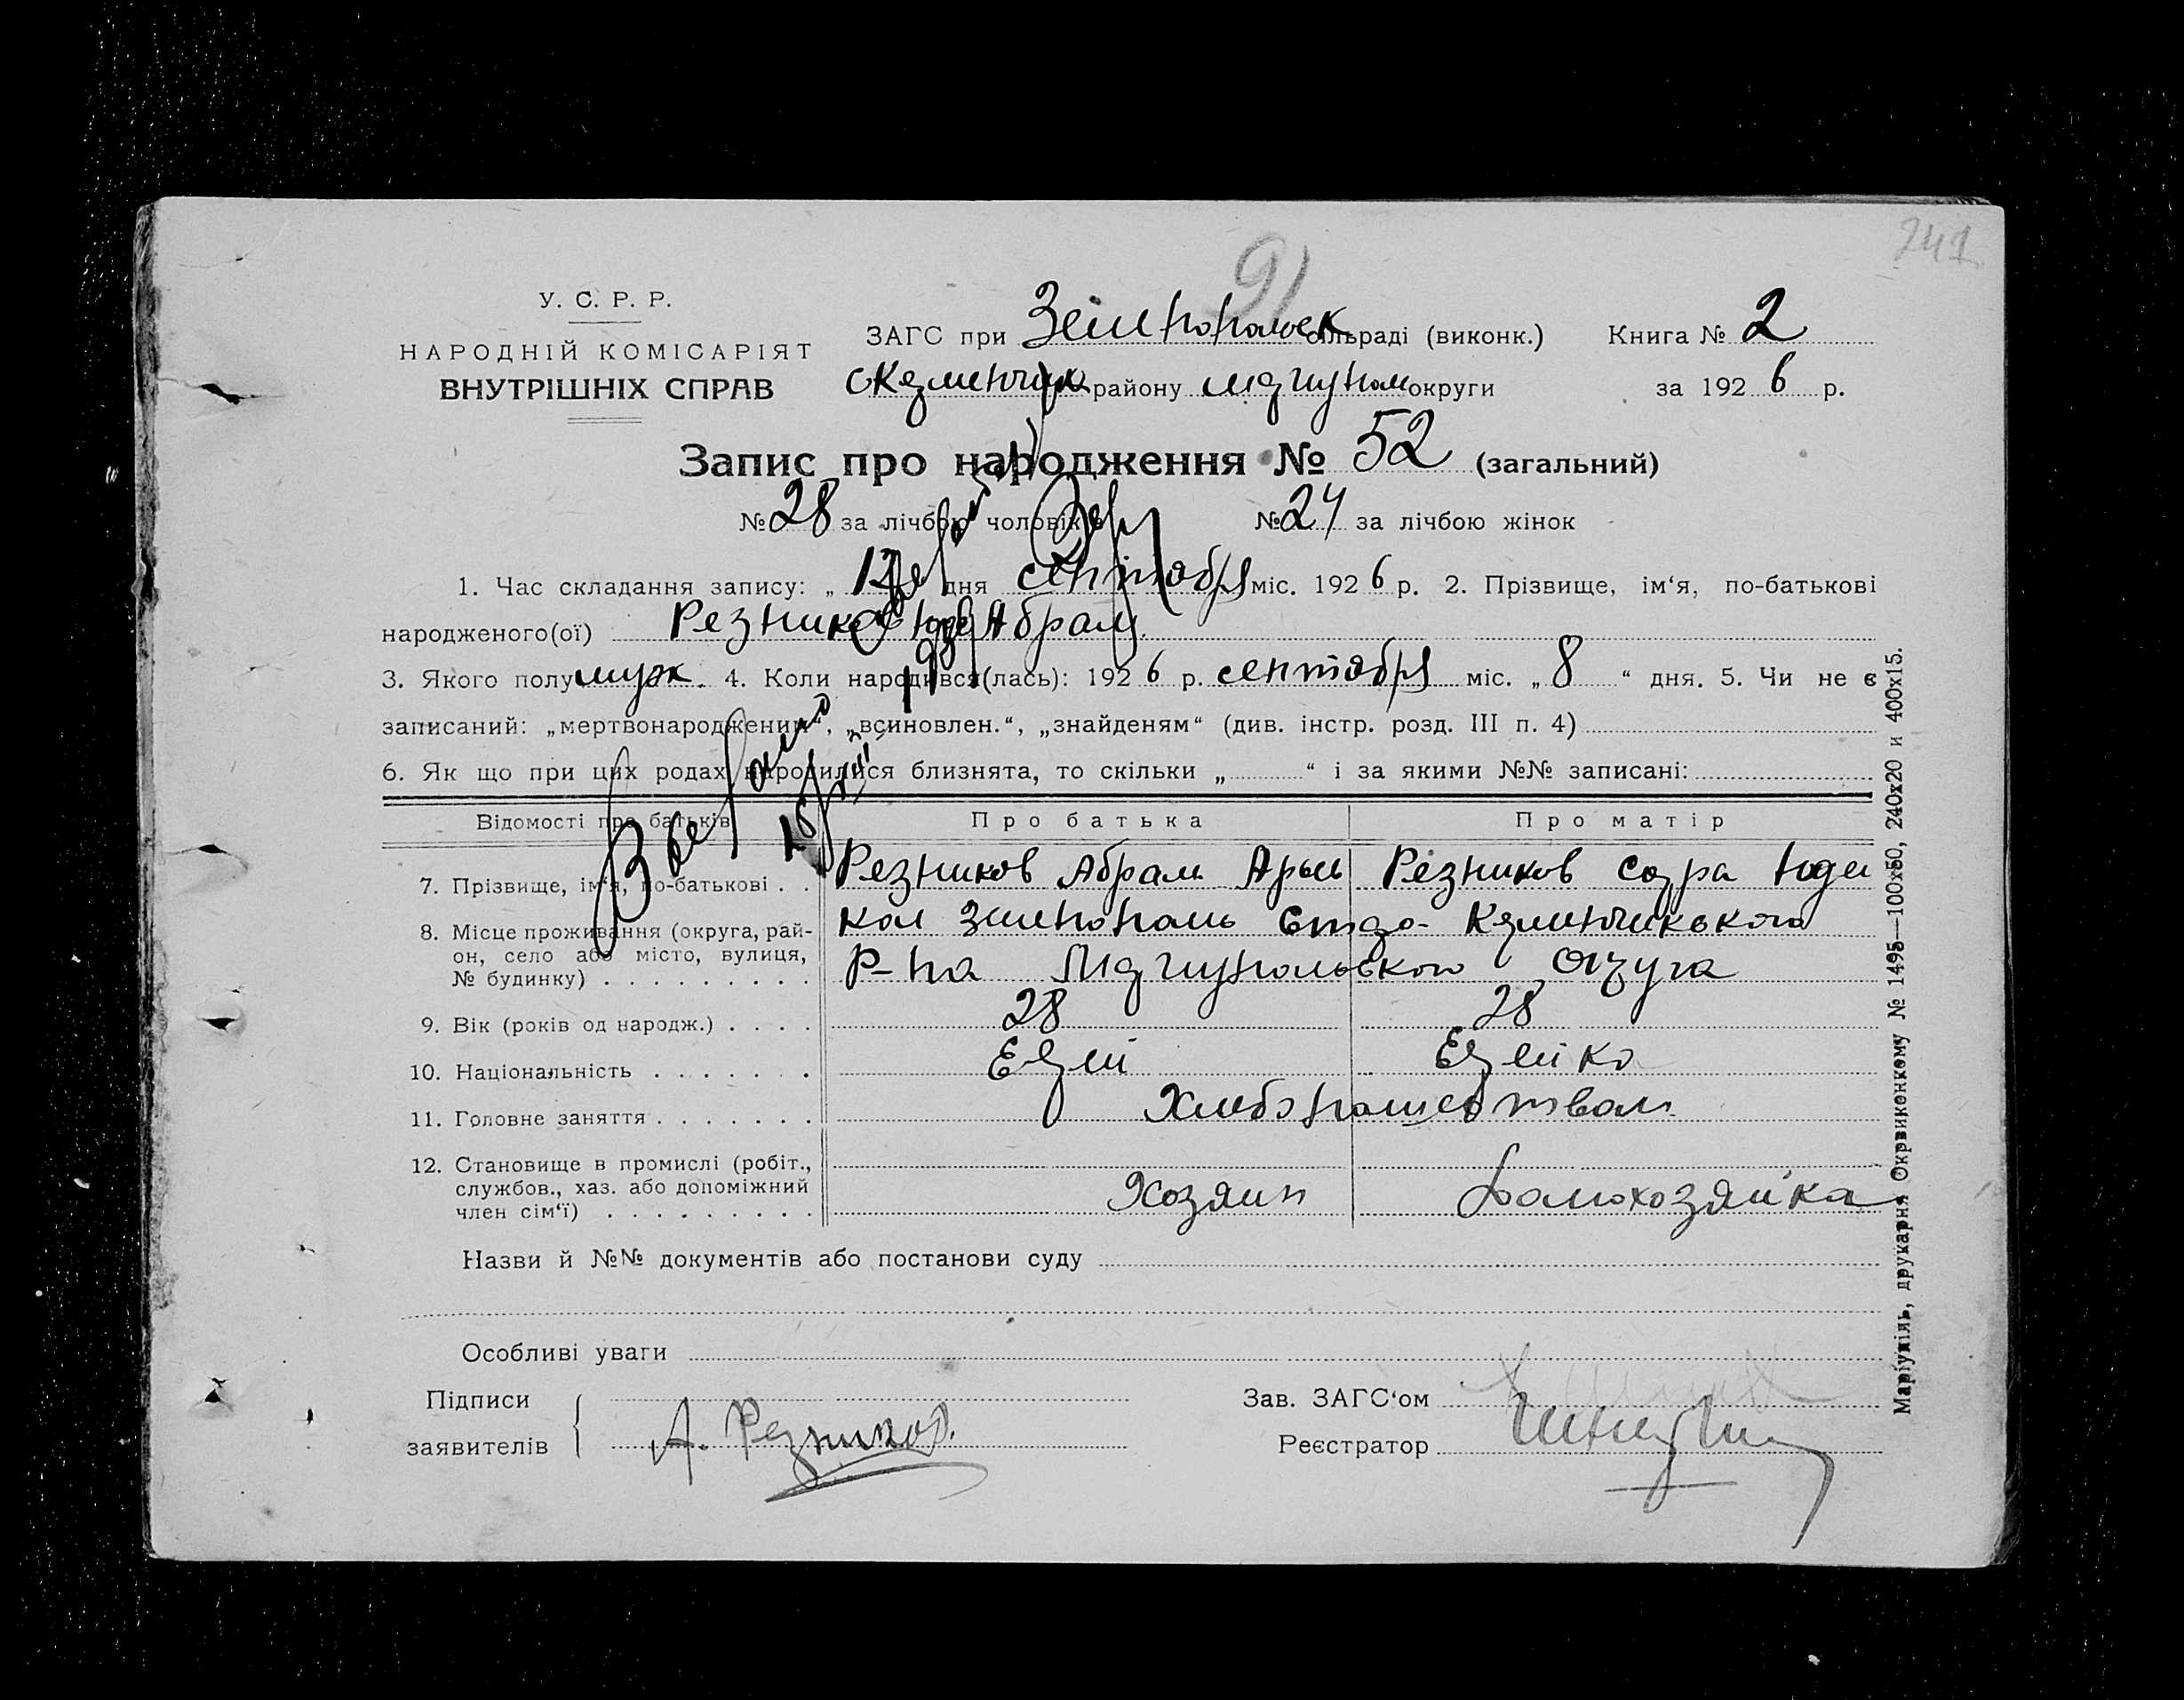 241
91
У. С. Р. Р.
НАРОДНІЙ КОМІСАРІЯТ
ВНУТРІШНІХ СПРАВ
ЗАГС при сільраді (виконк.) Книга № 2
району округи за 1926 р.
Запис про народження № 52 (загальний)
№ 28 за лічбою чоловіків № 24 за лічбою жінок
1. Час складання запису: „ 12 дня сентября міс. 1926 р. 2. Прізвище, ім‘я, по-батькові
народженого(ої) Резников Абрам
3. Якого полу муж. 4. Коли народився(лась): 1926 р. сентября міс. „ 8 “ дня. 5. Чи не є
записаний: „мертвонародженим“, „всиновлен.“, „знайденям“ (див. інстр. розд. III п. 4)
6. Як що при цих родах народилися близнята, то скільки „ “ і за якими №№ записані:
Відомості про батьків Про батька Про матір
7. Прізвище, ім‘я, по-батькові . . Резников Абрам Арьи Резников Сура
8. Місце проживання (округа, рай-
он, село або місто, вулиця,
№ будинку) . . . . . . . . . Р-на
9. Вік (років од народж.) . . . . 28 28
10. Національність . . . . . . .
11. Головне заняття . . . . . . . Хлебопашеством
12. Становище в промислі (робіт.,
службов., хаз. або допоміжний
член сім‘ї) . . . . . . . . . Хозяин Домохозяйка
Назви й №№ документів або постанови суду
Особливі уваги
Підписи
заявителів А. Резников.
Зав. ЗАГС‘ом
Реєстратор
Маріупіль, друкарня Окрвиконкому № 1495—100х50, 240х20 и 400х15.